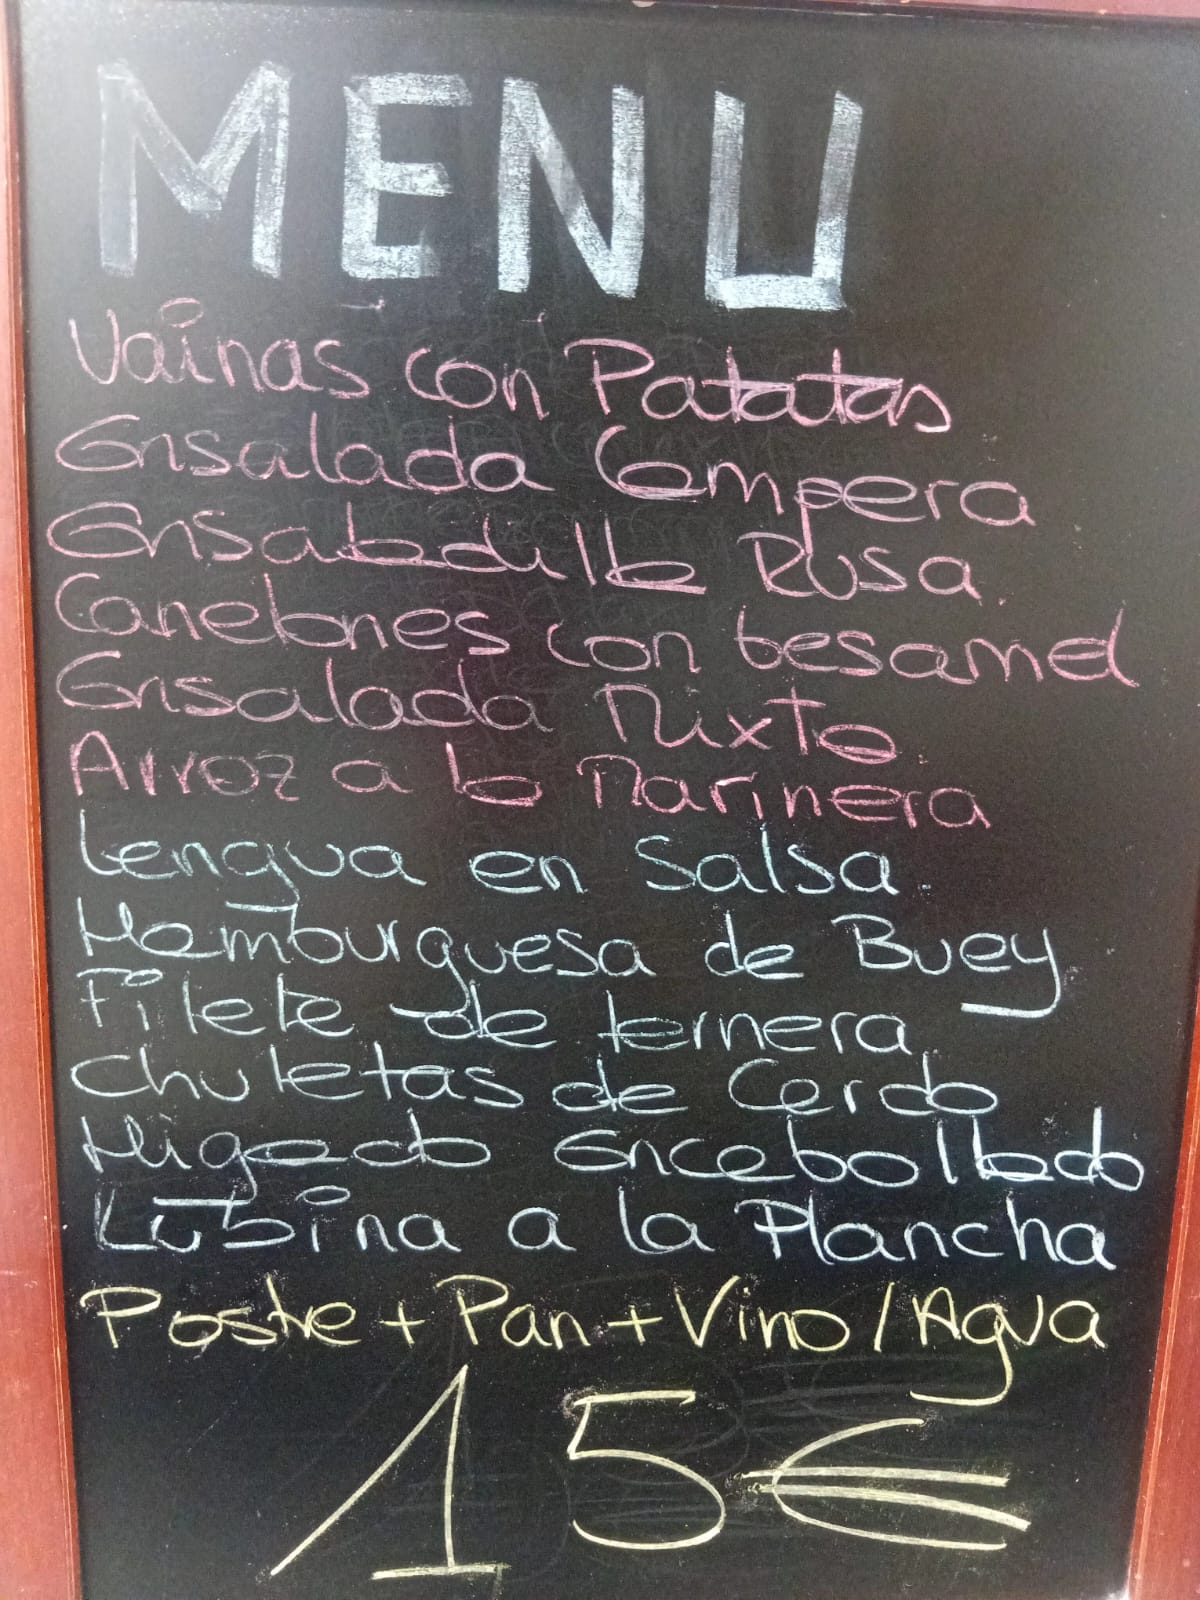 MENU
Vainas con Patatas
Ensalada Campera
Ensaladilla Rusa.
Canelones con besamel
Ensalada Mixta.
Arroz a la Marinera
Lengua en Salsa.
Hamburguesa de Buey
Filete de ternera
Chuletas de Cerdo
Higado Encebollado
Lubina a la Plancha
Postre + Pan + Vino / Agua
15€